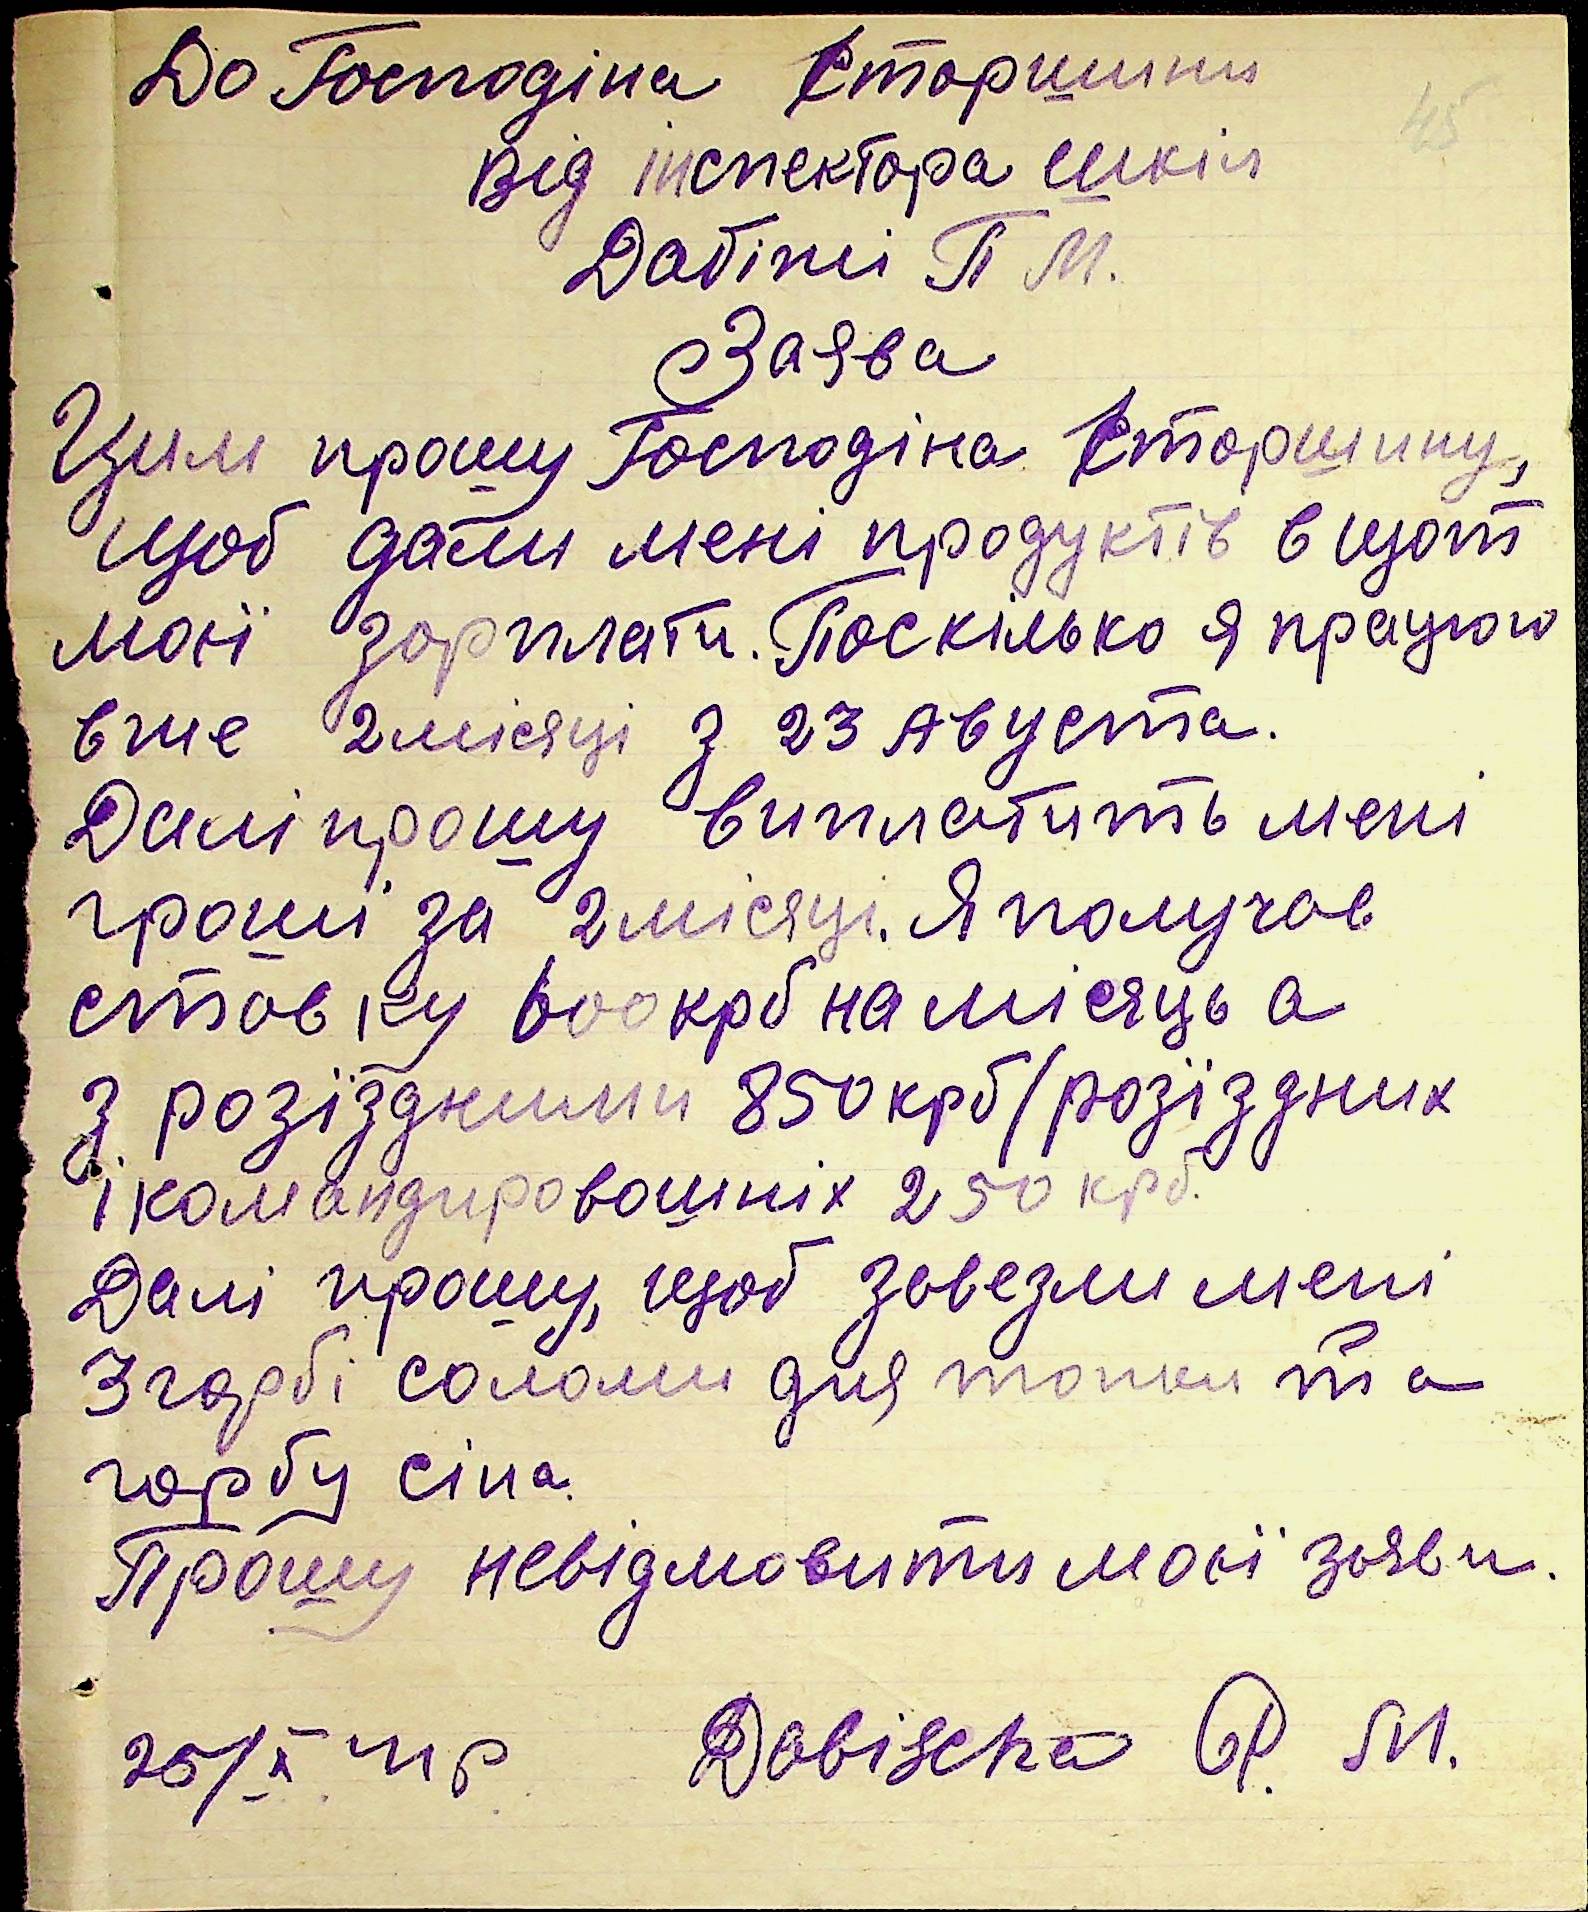 До Господіна Старшини
45
Від інспектора шкіл
Дабіжі П М.
Заява
Цим прошу Господіна Старшину,
щоб дали мені продуктів в щот
моєї зарплати. Поскілько я працюю
вже 2 місяці з 23 Августа.
Далі прошу виплатить мені
гроші за 2 місяці. Я получав
ставку 600 крб на місяць а
з розїздними 850 крб/розїздних
і командировошніх 250 крб.
Далі прошу, щоб завезли мені
3 гарбі соломи для топки та
гарбу сіна.
Прошу невідмовити моєї заяви.
25/X 41 р Dabischa P. M.